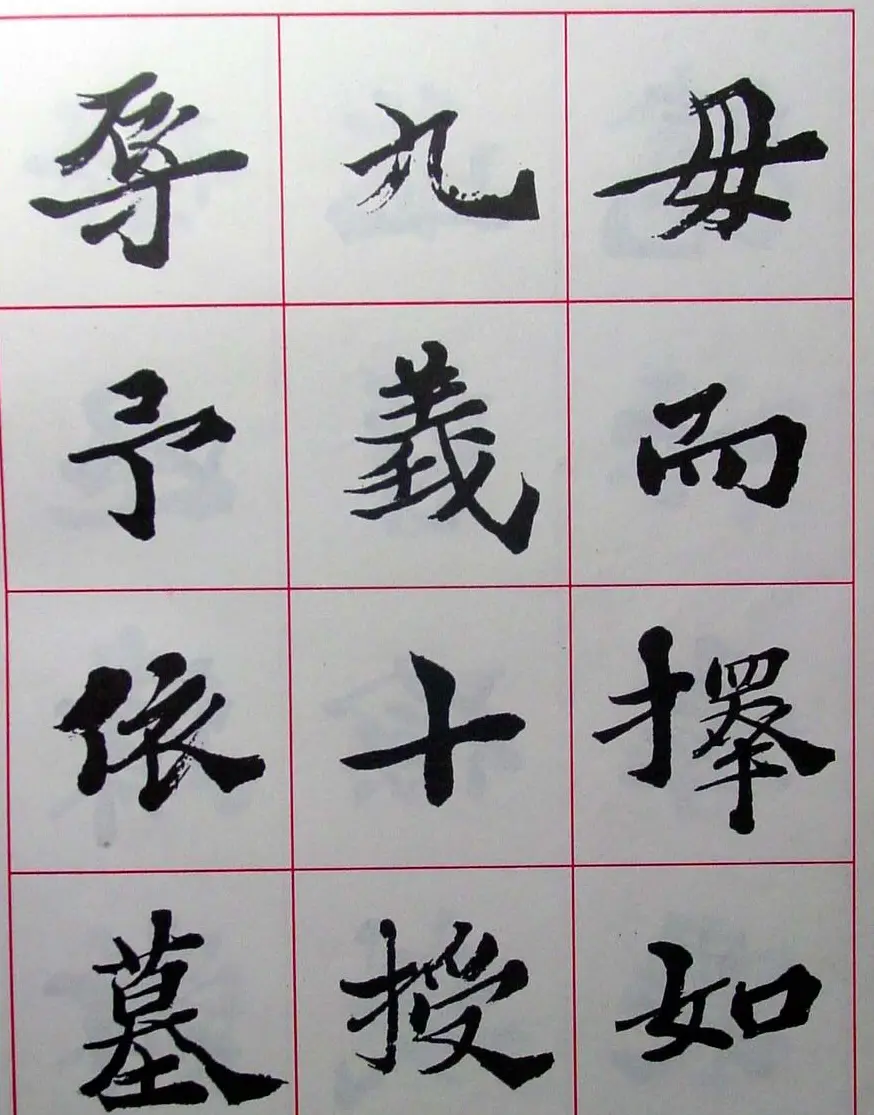 毋而擇如
九義十授
孕予依墓